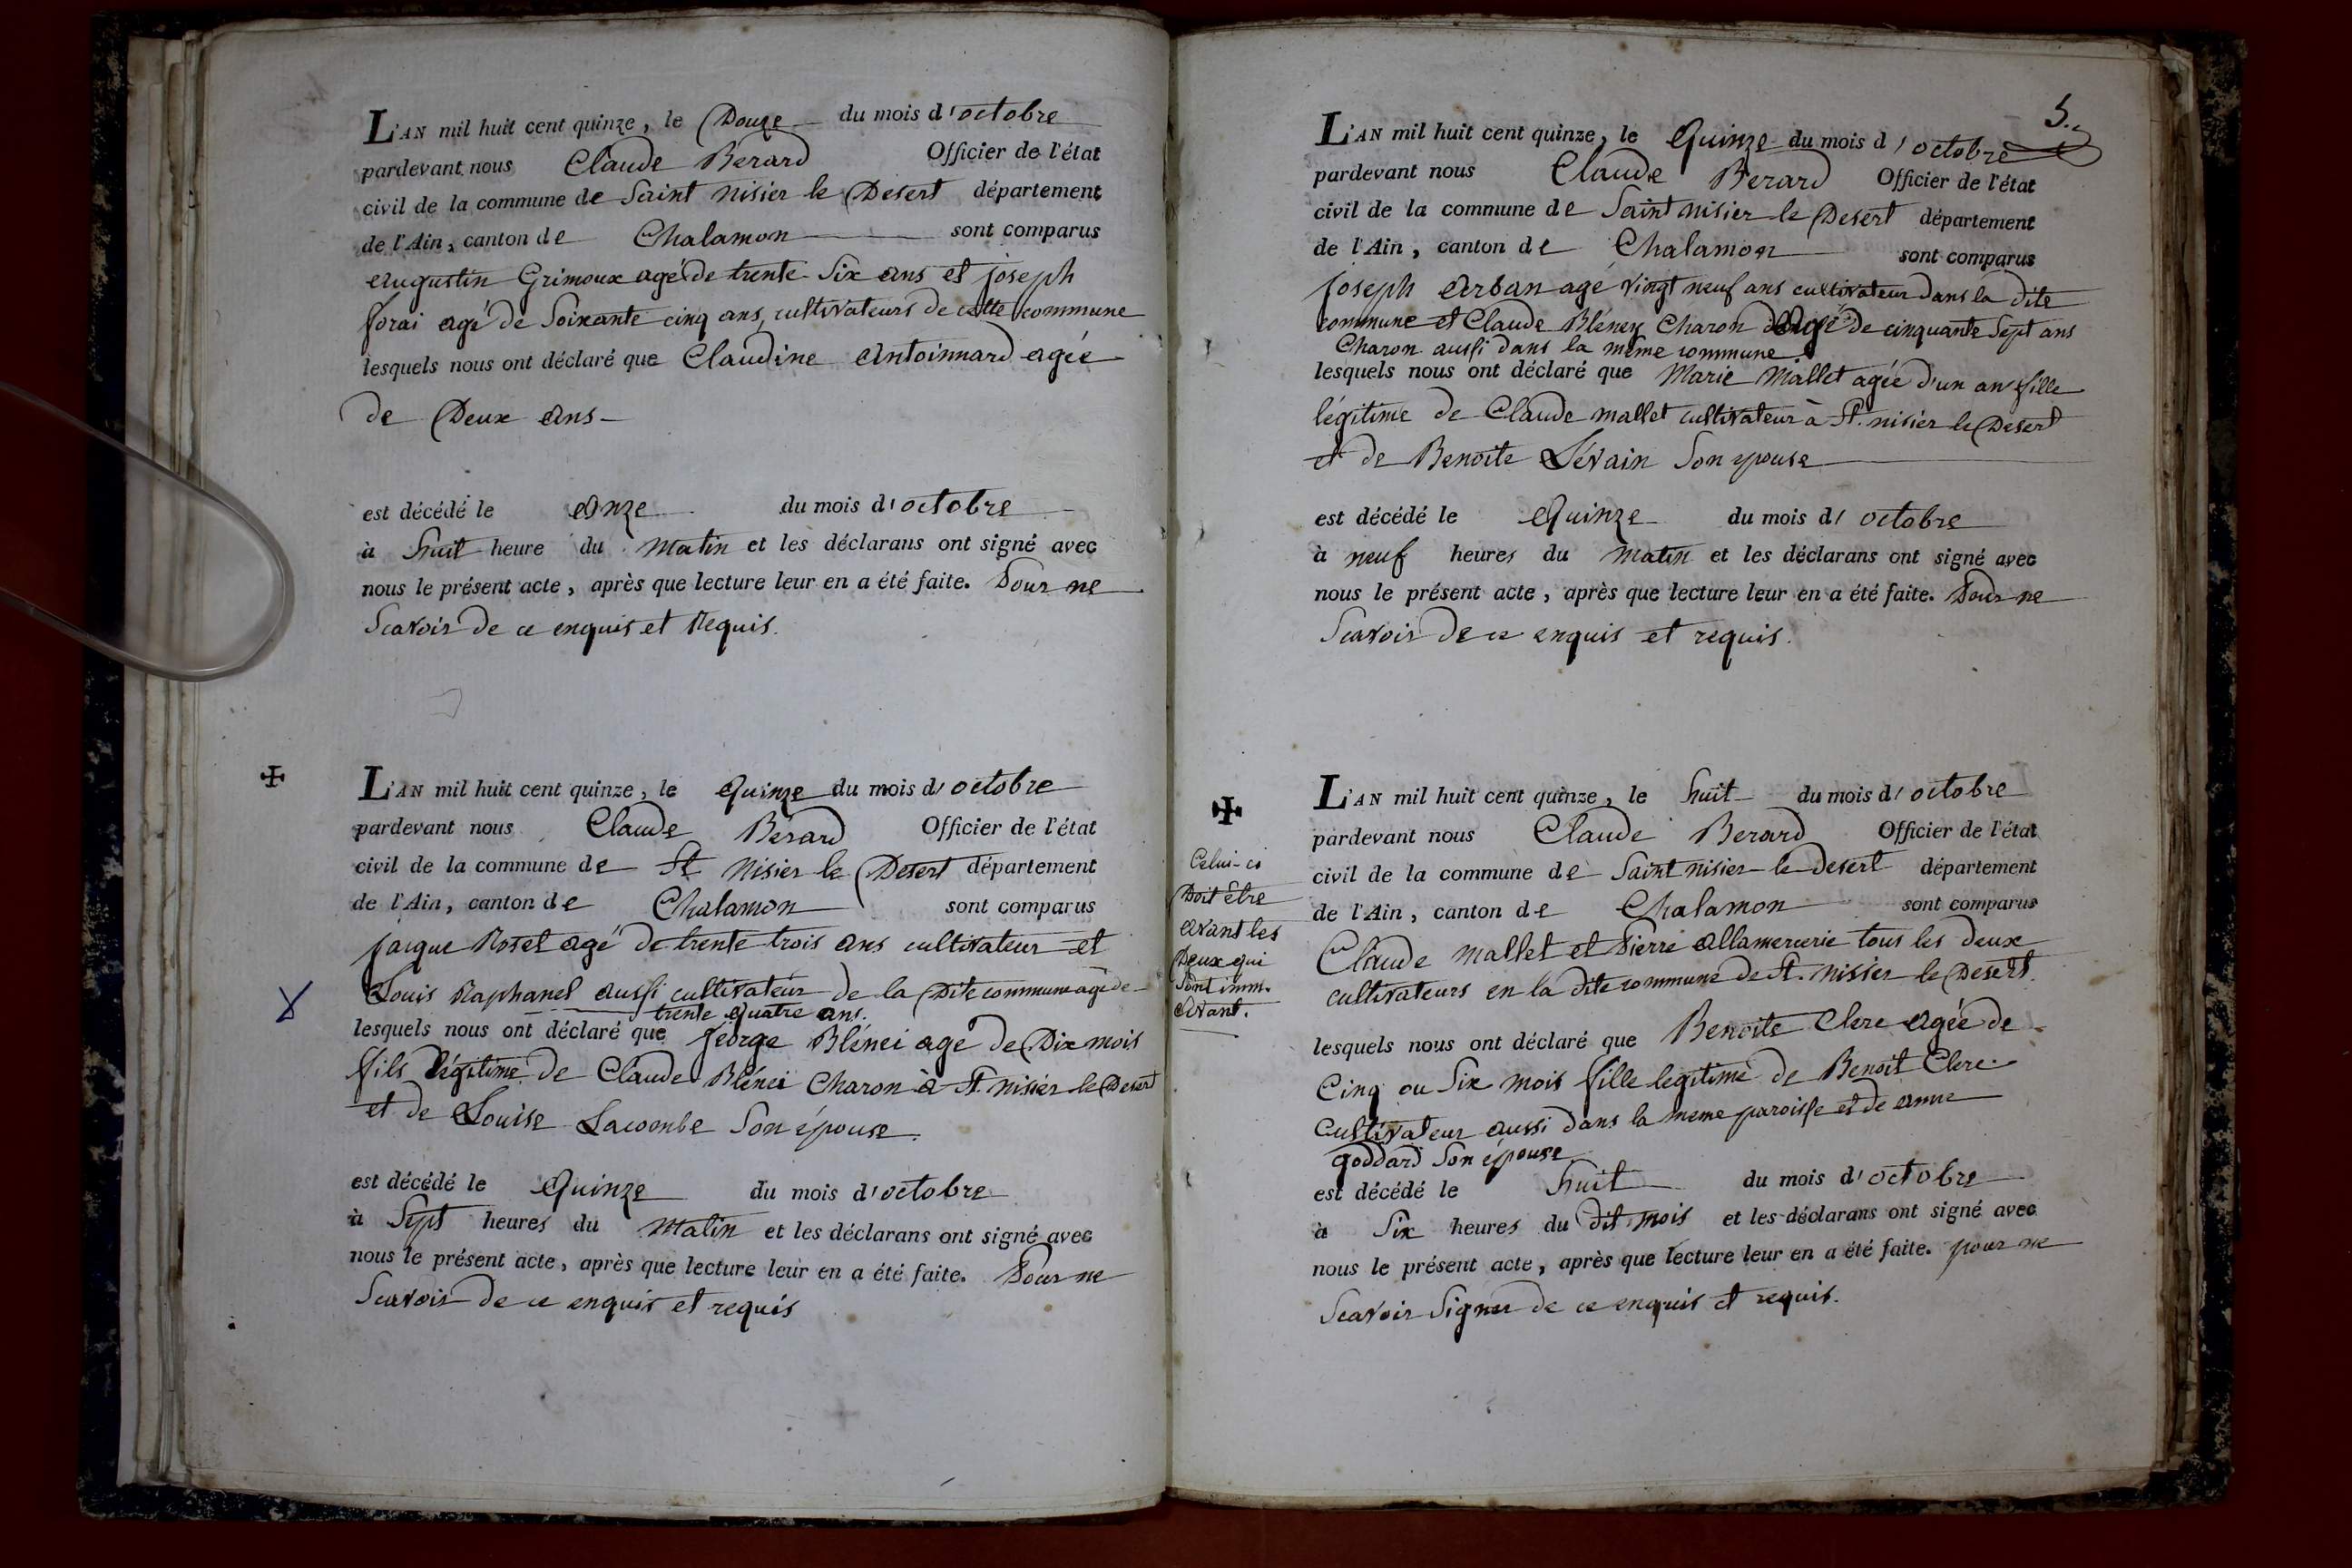 L'AN mil huit cent quinze, le Douze du mois d'octobre
pardevant nous Claude Berard Officier de l'état
civil de la commune de Saint nisier le Desert département
de l'Ain, canton de Chalamon sont comparus
augustin Grimoux agé de trente Six ans et joseph
forai agé de Soixante cinq ans, cultivateurs de cette commune
lesquels nous ont déclaré que Claudine Antoinnard agée
de Deux ans
est décédé le onze du mois d'octobre
à huit heure du Matin et les déclarans ont signé avec
nous le présent acte, après que lecture leur en a été faite. Pour ne
Scavoir de ce enquis et Requis.
✠
L'AN mil huit cent quinze, le Quinze du mois d'octobre
pardevant nous Claude Bérard Officier de l'état
civil de la commune de St Nisier le Desert département
de l'Ain, canton de Chalamon sont comparus
jacque Rosel agé de trente trois ans cultivateur et
Louis Raphanel aussi cultivateur de la Dite commune agé de
trente quatre ans.
lesquels nous ont déclaré que jeorge Blénei agé de Dix mois
fils légitime de Claude Blénei Charon à St. nisier le Desert
et de Louise Lacombe Son épouse.
est décédé le Quinze du mois d'octobre
à Sept heures du Matin et les déclarans ont signé avec
nous le présent acte, après que lecture leur en a été faite. Pour ne
Scavoir de ce enquis et requis
5.
L'AN mil huit cent quinze, le Quinze du mois d'octobre
pardevant nous Claude Berard Officier de l'état
civil de la commune de Saint nisier le Desert département
de l'Ain, canton de Chalamon sont comparus
joseph Arban agé vingt neuf ans cultivateur dans la dite
commune et Claude Bléney Charon agé de cinquante Sept ans
Charon aussi dans la même commune
lesquels nous ont déclaré que Marie Mallet agée d'un an fille
légitime de Claude mallet cultivateur à St. nisier le Desert
et de Benoite Lévain Son epouse
est décédé le Quinze du mois d'octobre
à neuf heures du matin et les déclarans ont signé avec
nous le présent acte, après que lecture leur en a été faite. Pour ne
Scavoir de ce enquis et requis.
✠
Celui-ci
Doit être
avant les
Deux qui
Sont imm.
avant.
L'AN mil huit cent quinze, le huit du mois d'octobre
pardevant nous Claude Berard Officier de l'état
civil de la commune de Saint nisier le Desert département
de l'Ain, canton de Chalamon sont comparus
Claude Mallet et Pierre Allamercerie tous les deux
cultivateurs en la dite commune de St. Nisier le Desert.
lesquels nous ont déclaré que Benoite Clerc agée de
Cinq ou Six mois fille legitime de Benoit Clerc
Cultivateur aussi dans la meme paroisse et de anne
goddard Son épouse
est décédé le huit du mois d'octobre
à Six heures du dit mois et les déclarans ont signé avec
nous le présent acte, après que lecture leur en a été faite. pour ne
Scavoir Signer de ce enquis et requis.